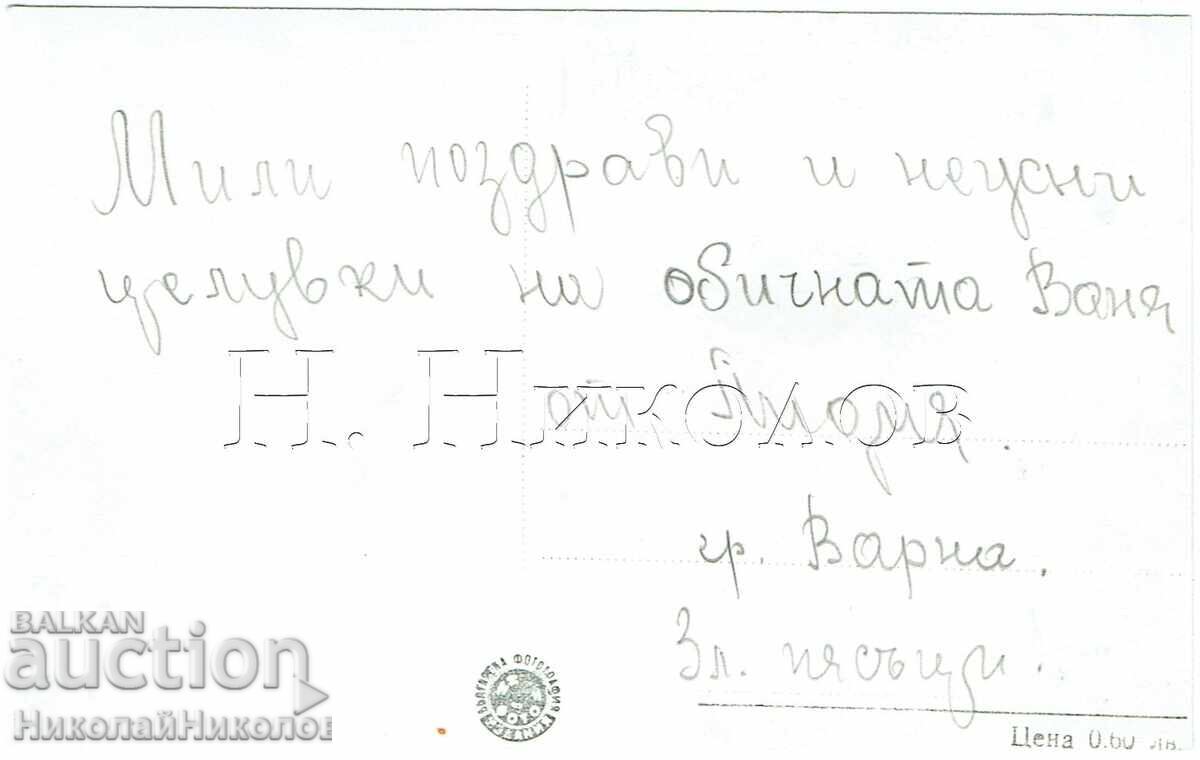 Мили поздрави и
целувки на обичната Ваня
Н. Николов
от
гр. Варна.
Зл. пясъци.
BALKAN
auction
НиколайНиколов
БЪЛГАРСКА ФОТОГРАФИЯ
ФОТО
Цена 0.60 лв.